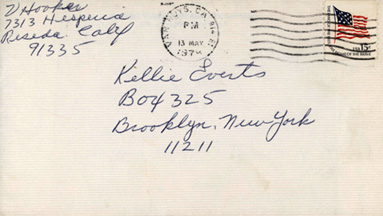 V Hooker
7313 Hesperia
Reseda Calif
91335
VAN NUYS, CA
PM
13 MAY
197
USA 15c
Killie Everts
Box 325
Brooklyn, New York
11211